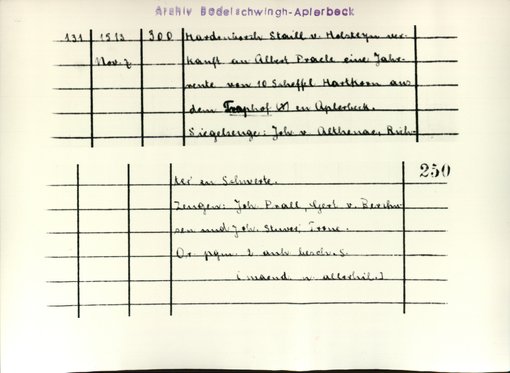 Archiv Bodelschwingh-Aplerbeck
131 1513 300 Hardenborch Staill v. Holsteyn ver-
Nov. 7 kauft an Albert Pracle eine Jahr-
rente von 10 Scheffel Hartkorn aus
dem Traphof (X) en Aplerbeck.
Siegelzeuge: Joh. v. Althenae, Rich-
250
ter en Schwerte.
Zeugen: Joh. Prall, Gert v. Berchu-
sen und Joh. Stuver, Frone.
Or. pgm. 2 anh. besch. S.